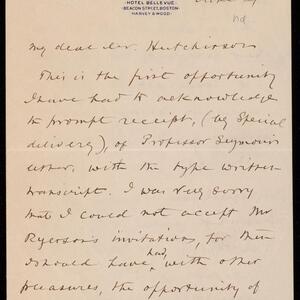 HOTEL BELLEVUE
BEACON STREET, BOSTON
HARVEY & WOOD
nd
My dear Mr. Hutchinson
This is the first opportunity
I have had to acknowledge
the prompt receipt, (by special
delivery), of Professor Seymour's
letter, with the type written
transcript. I was very sorry
that I could not accept Mr
Ryerson's invitations, for then
I should have had, with other
pleasures, the opportunity of